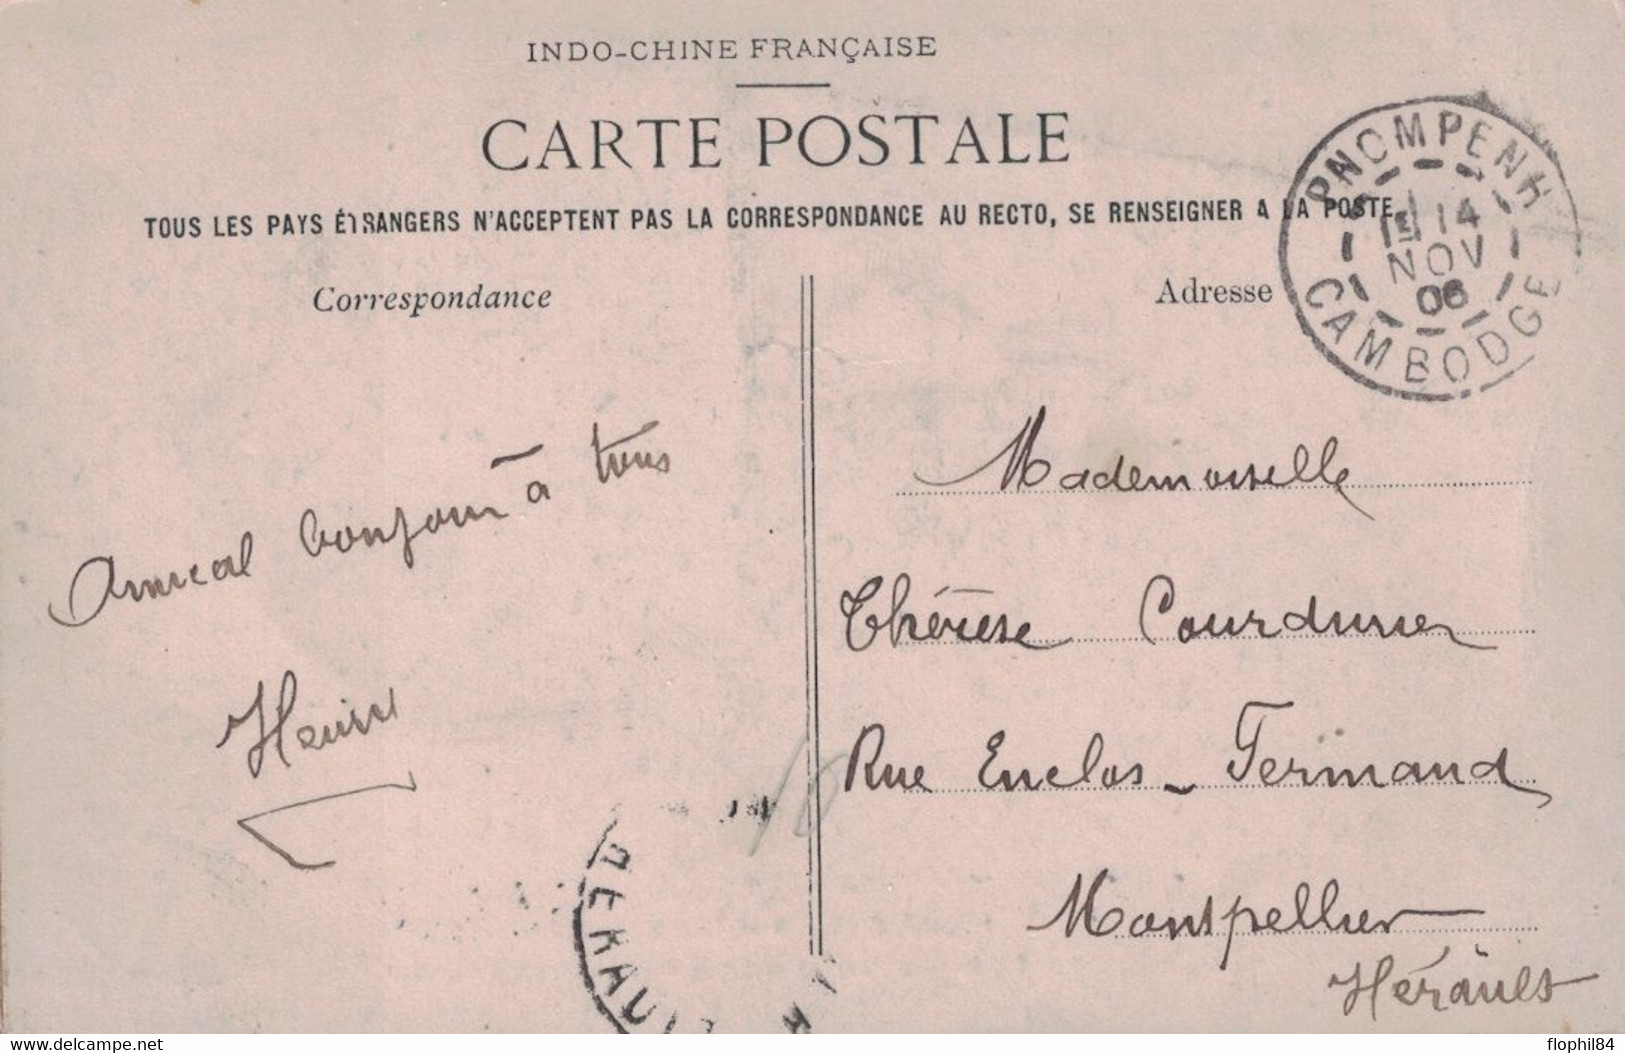 INDO-CHINE FRANÇAISE
CARTE POSTALE
TOUS LES PAYS ÉTRANGERS N'ACCEPTENT PAS LA CORRESPONDANCE AU RECTO, SE RENSEIGNER A LA POSTE
PNOMPENH
14
NOV
06
CAMBODGE
Correspondance
Amical bonjour à tous
Henri
Adresse
Mademoiselle
Thérèse
Rue Enclos - Fermand
Montpellier
Hérault
HERAU
Delcampe.net
flophil84